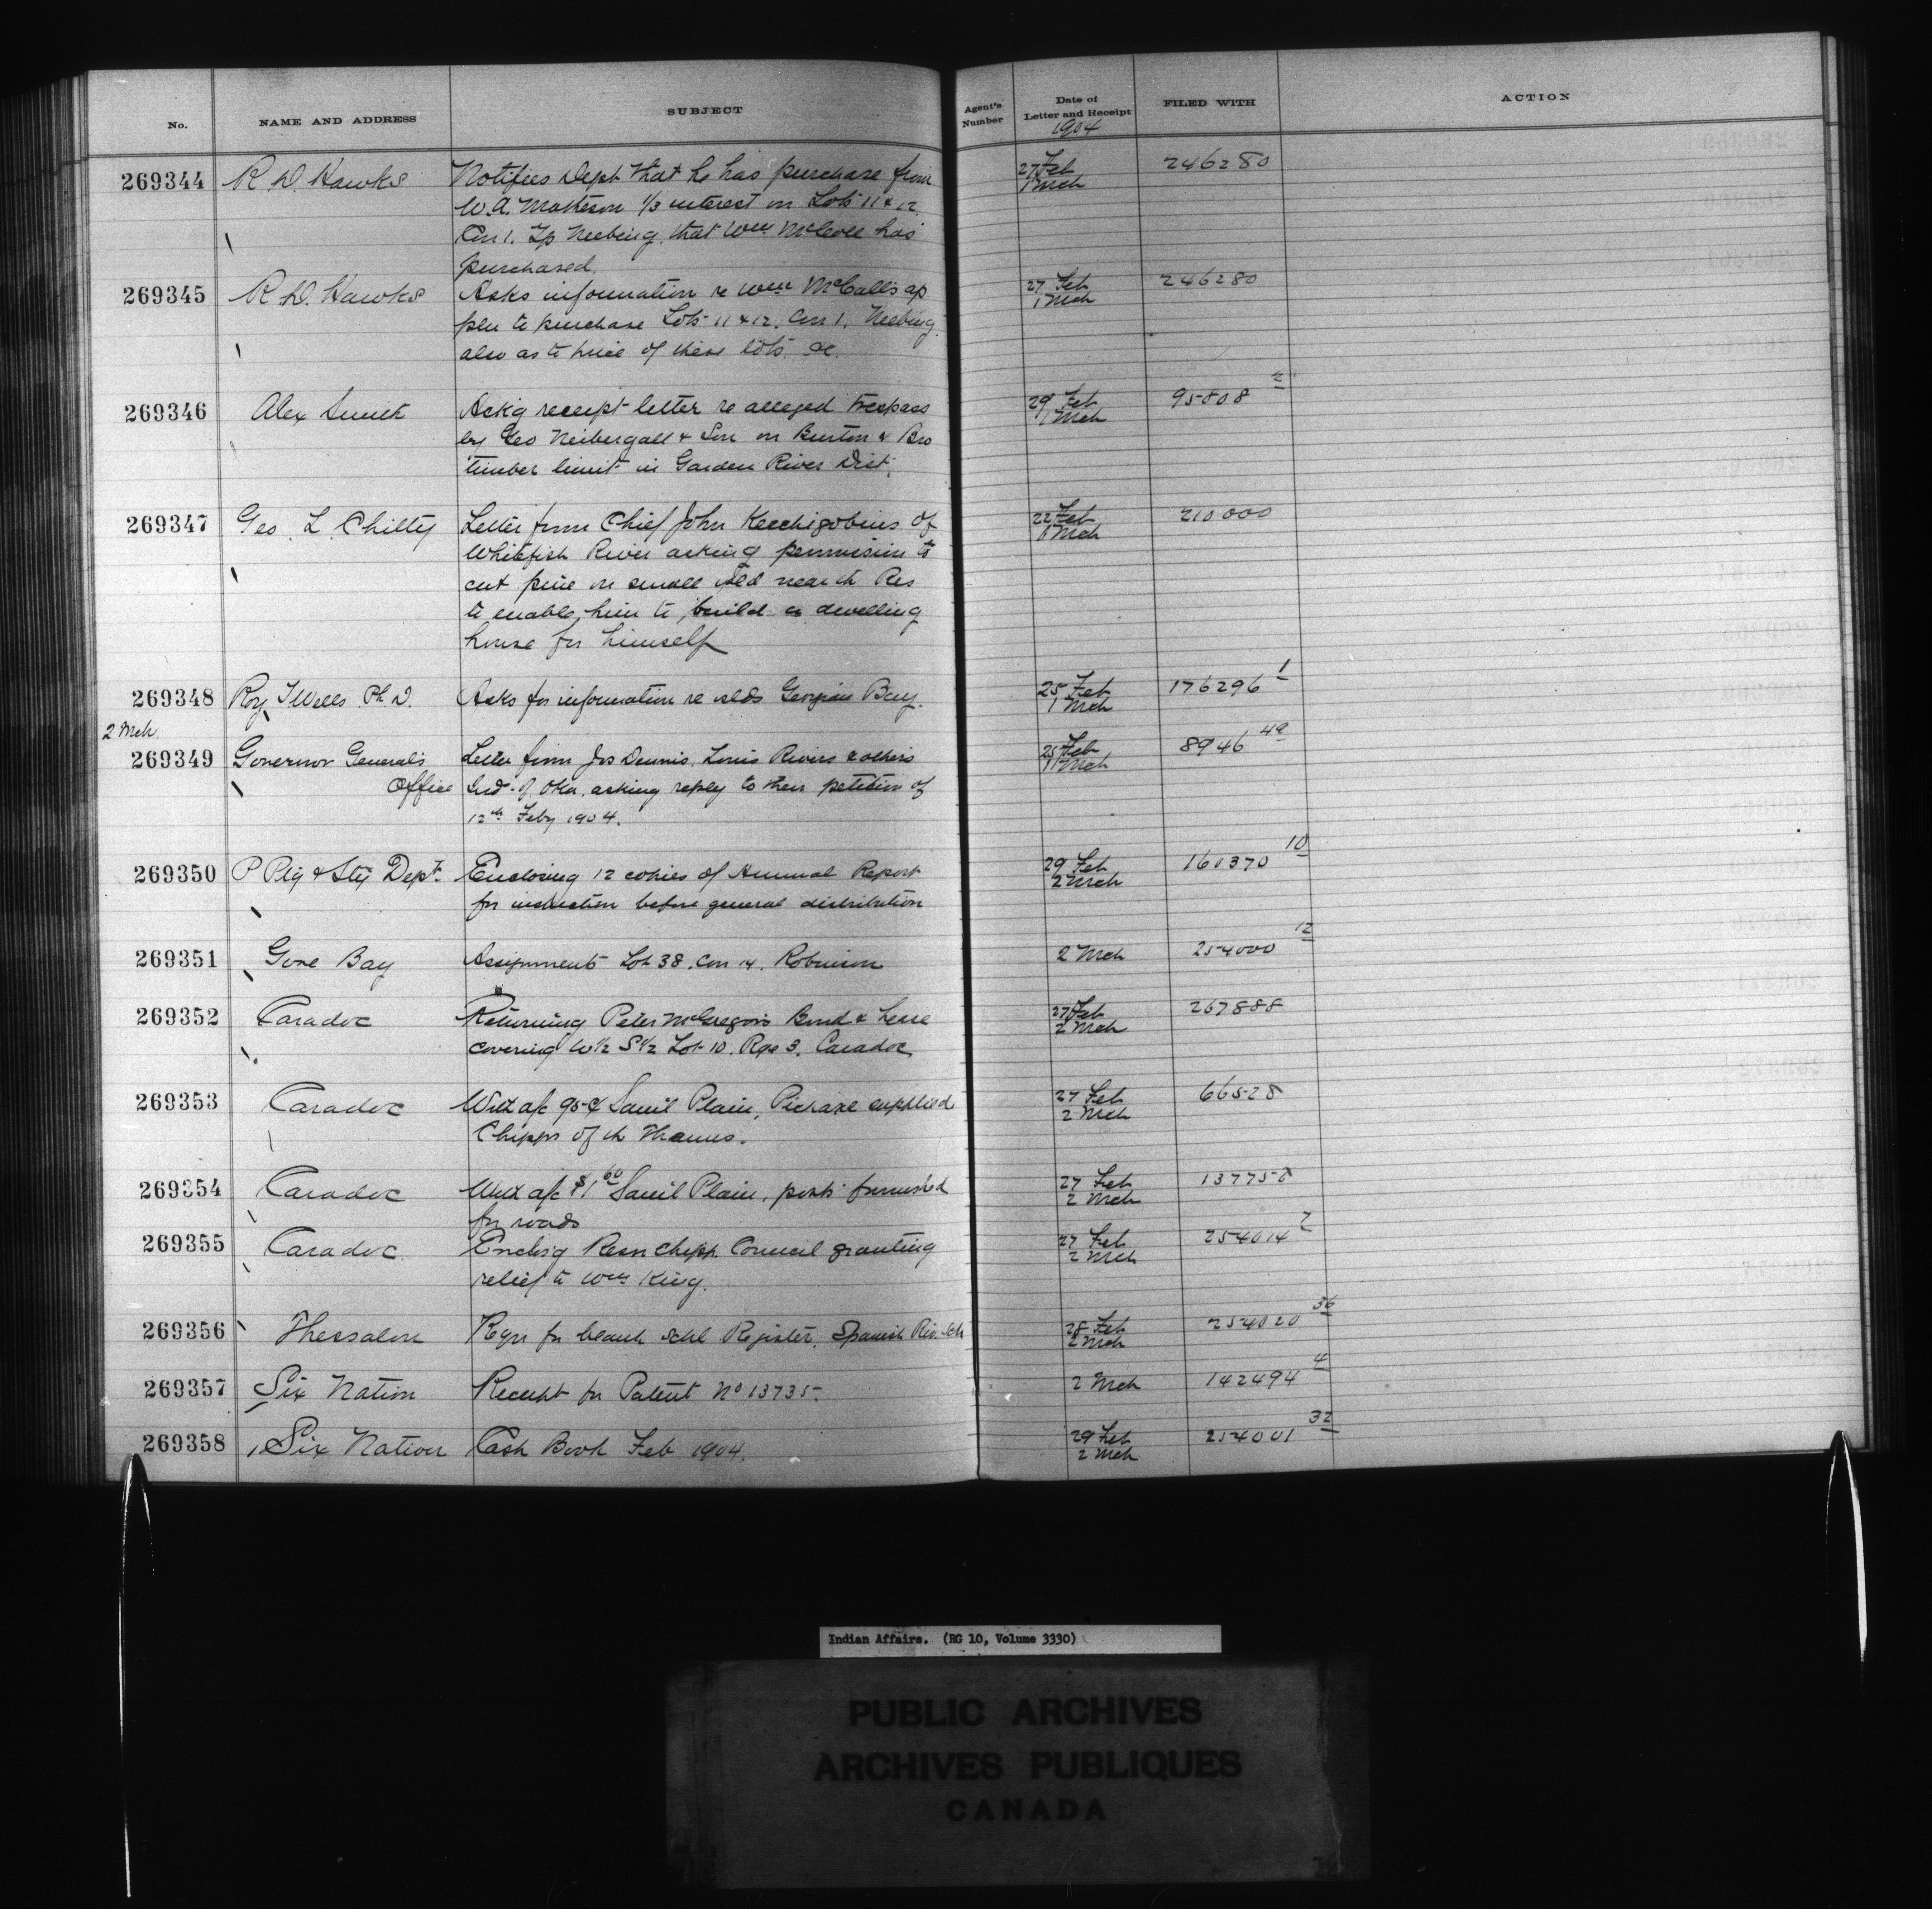 No. NAME AND ADDRESS SUBJECT Agent's Number Date of Letter and Receipt FILED WITH ACTION
1904
269344 R D. Hawks Notifies Dept that he has purchase from 27 Feb 246280
W.A. Matheson 1/3 interest in Lots 11 & 12. 1 Mch
Con 1. Tp Neebing. that Wm McCall has
purchased.
269345 R D. Hawks Asks information re Wm McCall's ap 27 Feb 246280
pln to purchase Lots 11 & 12. Con 1. Neebing 1 Mch
also as to price of these lots. &c.
269346 Alex Ackg receipt letter re alleged trespass 29 Feb 95808 2
by Geo Neibergall & Son on Burton & Bro 1 Mch
timber limit in Garden River Dist.
269347 Geo. L. Chitty Letter from Chief John of 22 Feb 210000
Whitefish River asking permission to 1 Mch
cut pine on small isld near th Res
to enable him to build a dwelling
house for himself
269348 Roy Wells Ph D. Asks for information re islds Georgian Bay. 25 Feb 176296 1
1 Mch
2 Mch
269349 Governor General's Letter from Jos Dennis, Louis Rivers & others 25 Feb 8946 49
Office Ind. of Oka. asking reply to their petition of 1 Mch
12th Feby 1904.
269350 P Ptg & Sty Dept. Enclosing 12 copies of Annual Report 29 Feb 160370 10
for before general distribution 2 Mch
269351 Gore Bay Assignments Lot 38. Con 14. Robinson 2 Mch 254000 12
269352 Caradoc Returning Peter McGregor's Bond & Lease 27 Feb 267888
covering W½ S½ Lot 10. Rge 3. Caradoc 2 Mch
269353 Caradoc a/c 95¢ Saml Plain, Pickaxe supplied 27 Feb 66528
Chipps of th Thames. 2 Mch
269354 Caradoc a/c $1 60 Saml Plain, posts furnished 27 Feb 137758
for roads 2 Mch
269355 Caradoc Enclsg Resn Chipp. Council granting 27 Feb 254014 7
relief to Wm King. 2 Mch
269356 Thessalon Reqn for blank schl Register. Spanish Riv. Sch 28 Feb 254020 36
2 Mch
269357 Six Nation Receipt for Patent No 13735. 2 Mch 142494 4
269358 Six Nation Cash Book Feb 1904. 29 Feb 254001 32
2 Mch
Indian Affairs. (RG 10, Volume 3330)
PUBLIC ARCHIVES
ARCHIVES PUBLIQUES
CANADA